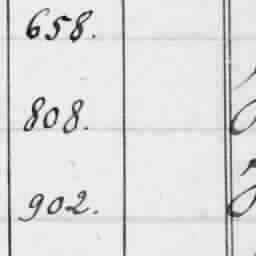 658.
808.
902.